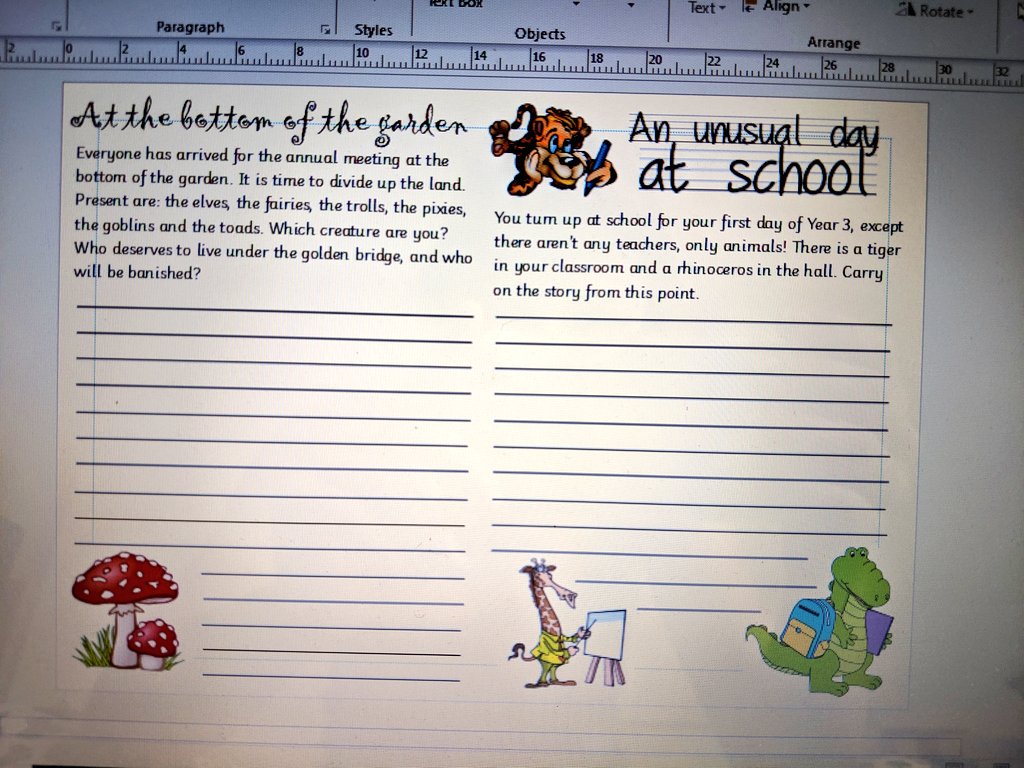 Text BOX
Text
Align
Rotate
Paragraph
Styles
Objects
Arrange
2 0 2 4 6 8 10 12 14 16 18 20 22 24 26 28 30 32
At the bottom of the garden
Everyone has arrived for the annual meeting at the
bottom of the garden. It is time to divide up the land.
Present are: the elves, the fairies, the trolls, the pixies,
the goblins and the toads. Which creature are you?
Who deserves to live under the golden bridge, and who
will be banished?
An unusual day
at school
You turn up at school for your first day of Year 3, except
there aren't any teachers, only animals! There is a tiger
in your classroom and a rhinoceros in the hall. Carry
on the story from this point.